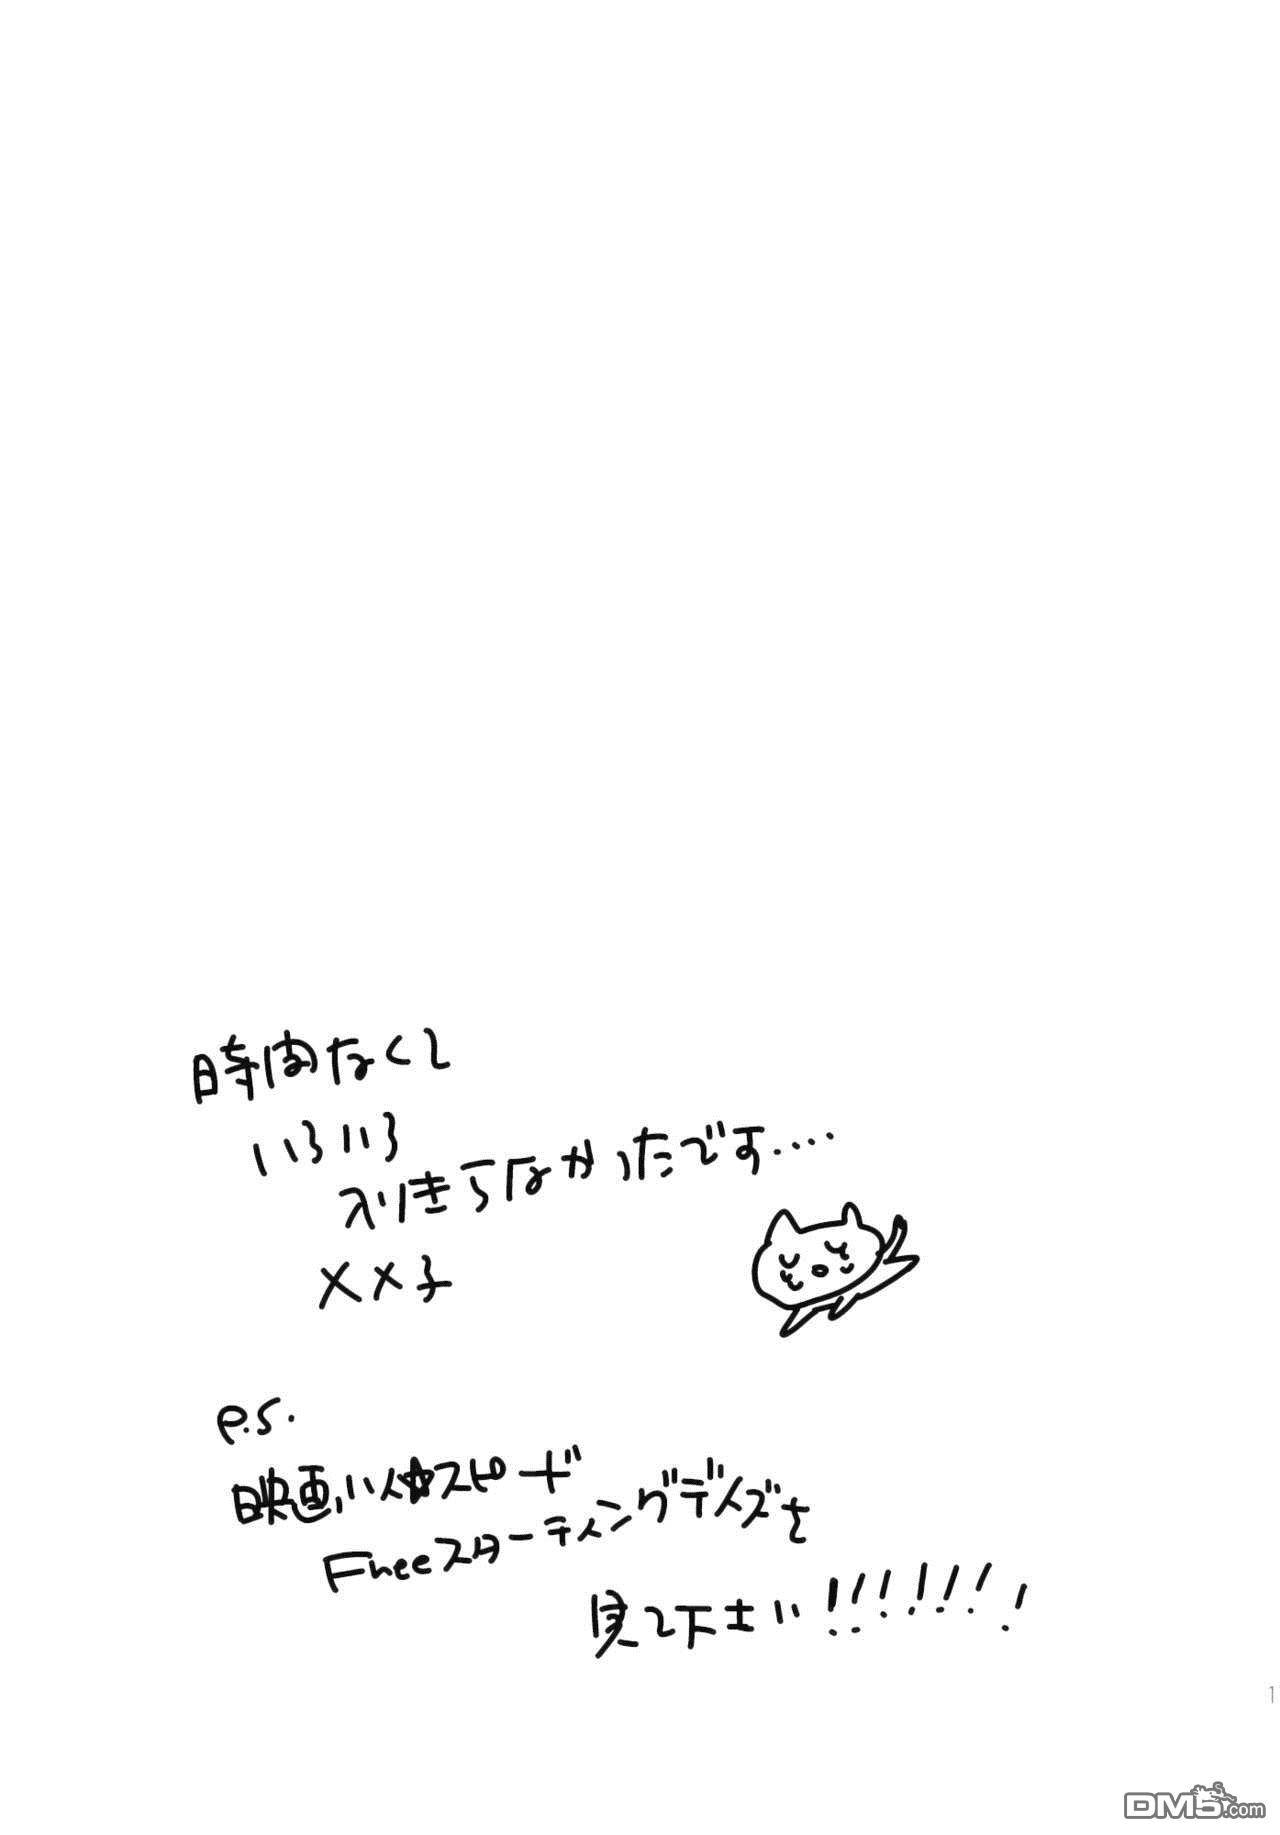 時間なくて
いろいろ
入りきらなかったです....
××子
P.S.
映画ハイ☆スピード
Freeスターティングデイズを
見て下さい!!!!!!!
1
DM5.com